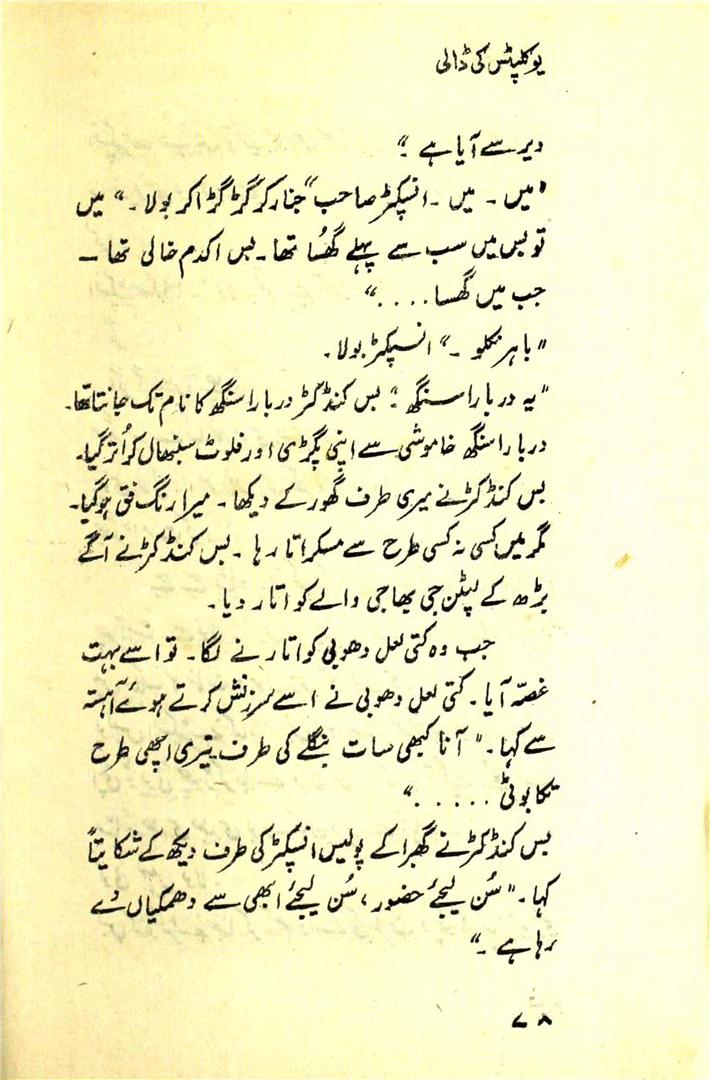 یوکلپٹس کی ڈالی
دیر سے آیا ہے ۔"
"میں ۔ میں ۔ انسپکٹر صاحب" جنار کر گڑگڑا کر بولا ۔ " میں
تو بس میں سب سے پہلے گھُسا تھا ۔ بس اکدم خالی تھا —
جب میں گھسا . . . . "
"باہر نکلو ۔" انسپکٹر بولا ۔
"یہ دربارا سنگھ ؛" بس کنڈکٹر دربارا سنگھ کا نام تک جانتا تھا ۔
دربارا سنگھ خاموشی سے اپنی پگڑی اور فلوٹ سنبھال کر اُتر گیا ۔
بس کنڈکٹر نے میری طرف گھور کے دیکھا ۔ میرا رنگ فق ہو گیا ۔
مگر میں کسی نہ کسی طرح سے مسکراتا رہا ۔ بس کنڈکٹر نے آگے
بڑھ کے پٹن جی بھاجی والے کو اتار دیا ۔
جب وہ کتی لعل دھوبی کو اتارنے لگا ۔ تو اسے بہت
غصّہ آیا ۔ کتی لعل دھوبی نے اسے سرزنش کرتے ہوئے آہستہ
سے کہا ۔ " آنا کبھی سات بنگلے کی طرف ۔ تیری اچھی طرح
تکا بوٹی . . . . . "
بس کنڈکٹر نے گھبرا کے پولیس انسپکٹر کی طرف دیکھ کے شکایتاً
کہا ۔ " سُن لیجئے حضور ، سُن لیجئے ابھی سے دھمکیاں دے
رہا ہے ۔"
۷۸